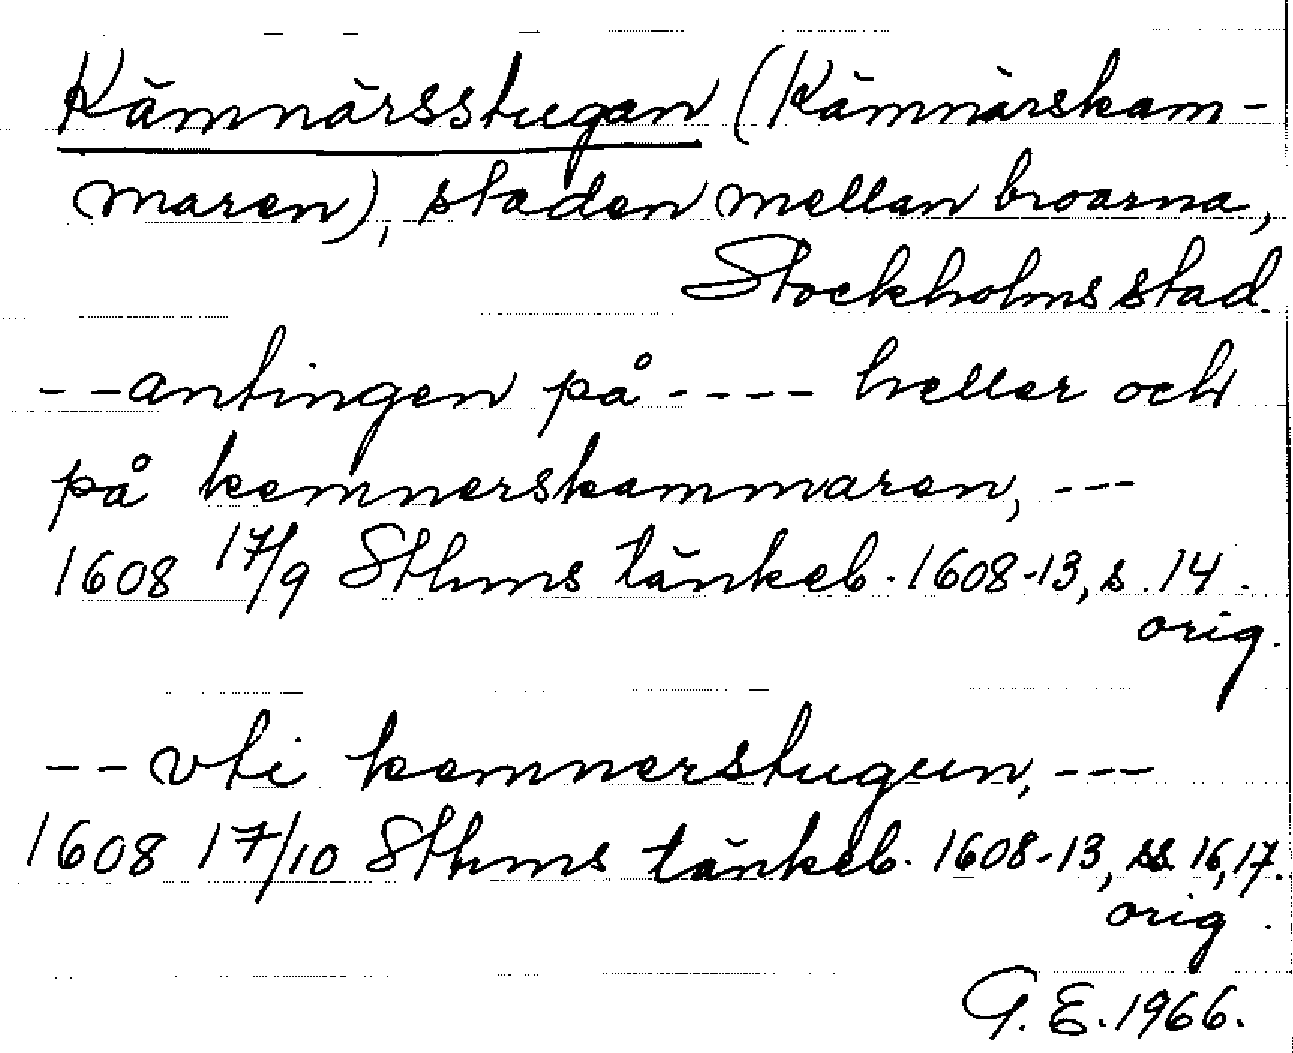 Kämnärsstugan (Kämnärskam-
maren), staden mellan broarna,
Stockholms stad.
--antingen på ---- heller och
på kemnerskammaren, ---
1608 17/9 Sthms tänkeb. 1608-13, s. 14.
orig.
--vti kemnerstugun, ---
1608 17/10 Sthms tänkeb. 1608-13, ss. 16, 17.
orig.
G. E. 1966.